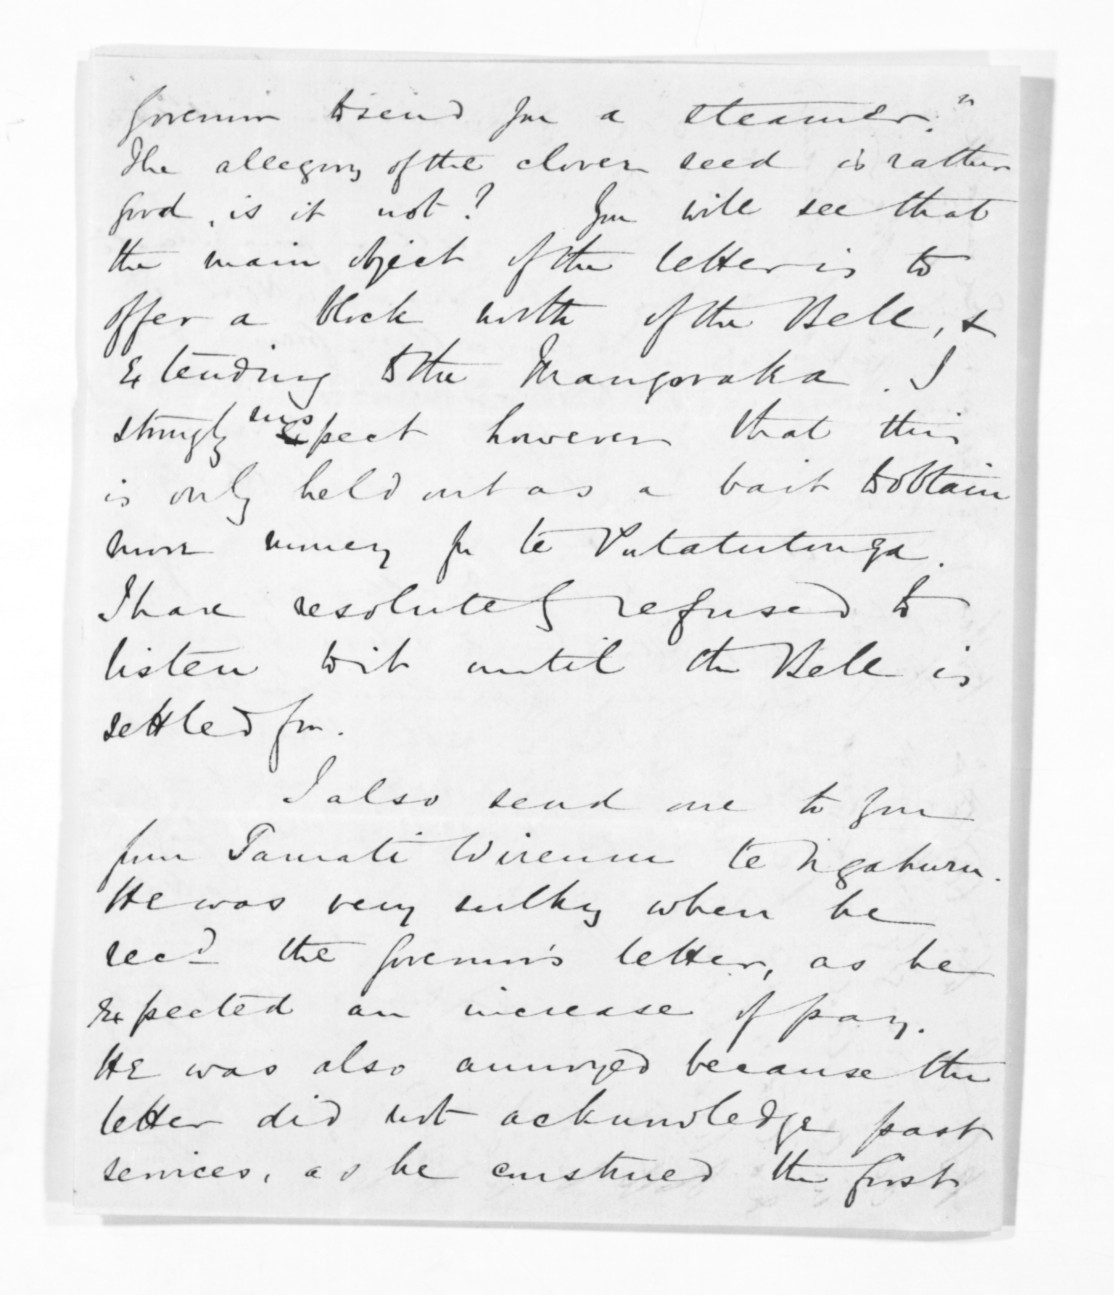 Governor to send for a steamer."
The allegory of the clover seed is rather
good, is it not? You will see that
the main object of the letter is to
offer a block north of the Bell, &
extending to the Mangoraka. I
strongly suspect however that this
is only held out as a bait to obtain
more money for te Putatutonga.
I have resolutely refused to
listen to it until the Bell is
settled for.
I also send one to you
from Tamati Wiremu te Ngahuru.
He was very sulky when he
recd the Governor's letter, as he
expected an increase of pay.
He was also annoyed because the
letter did not acknowledge past
services, as he construed the first